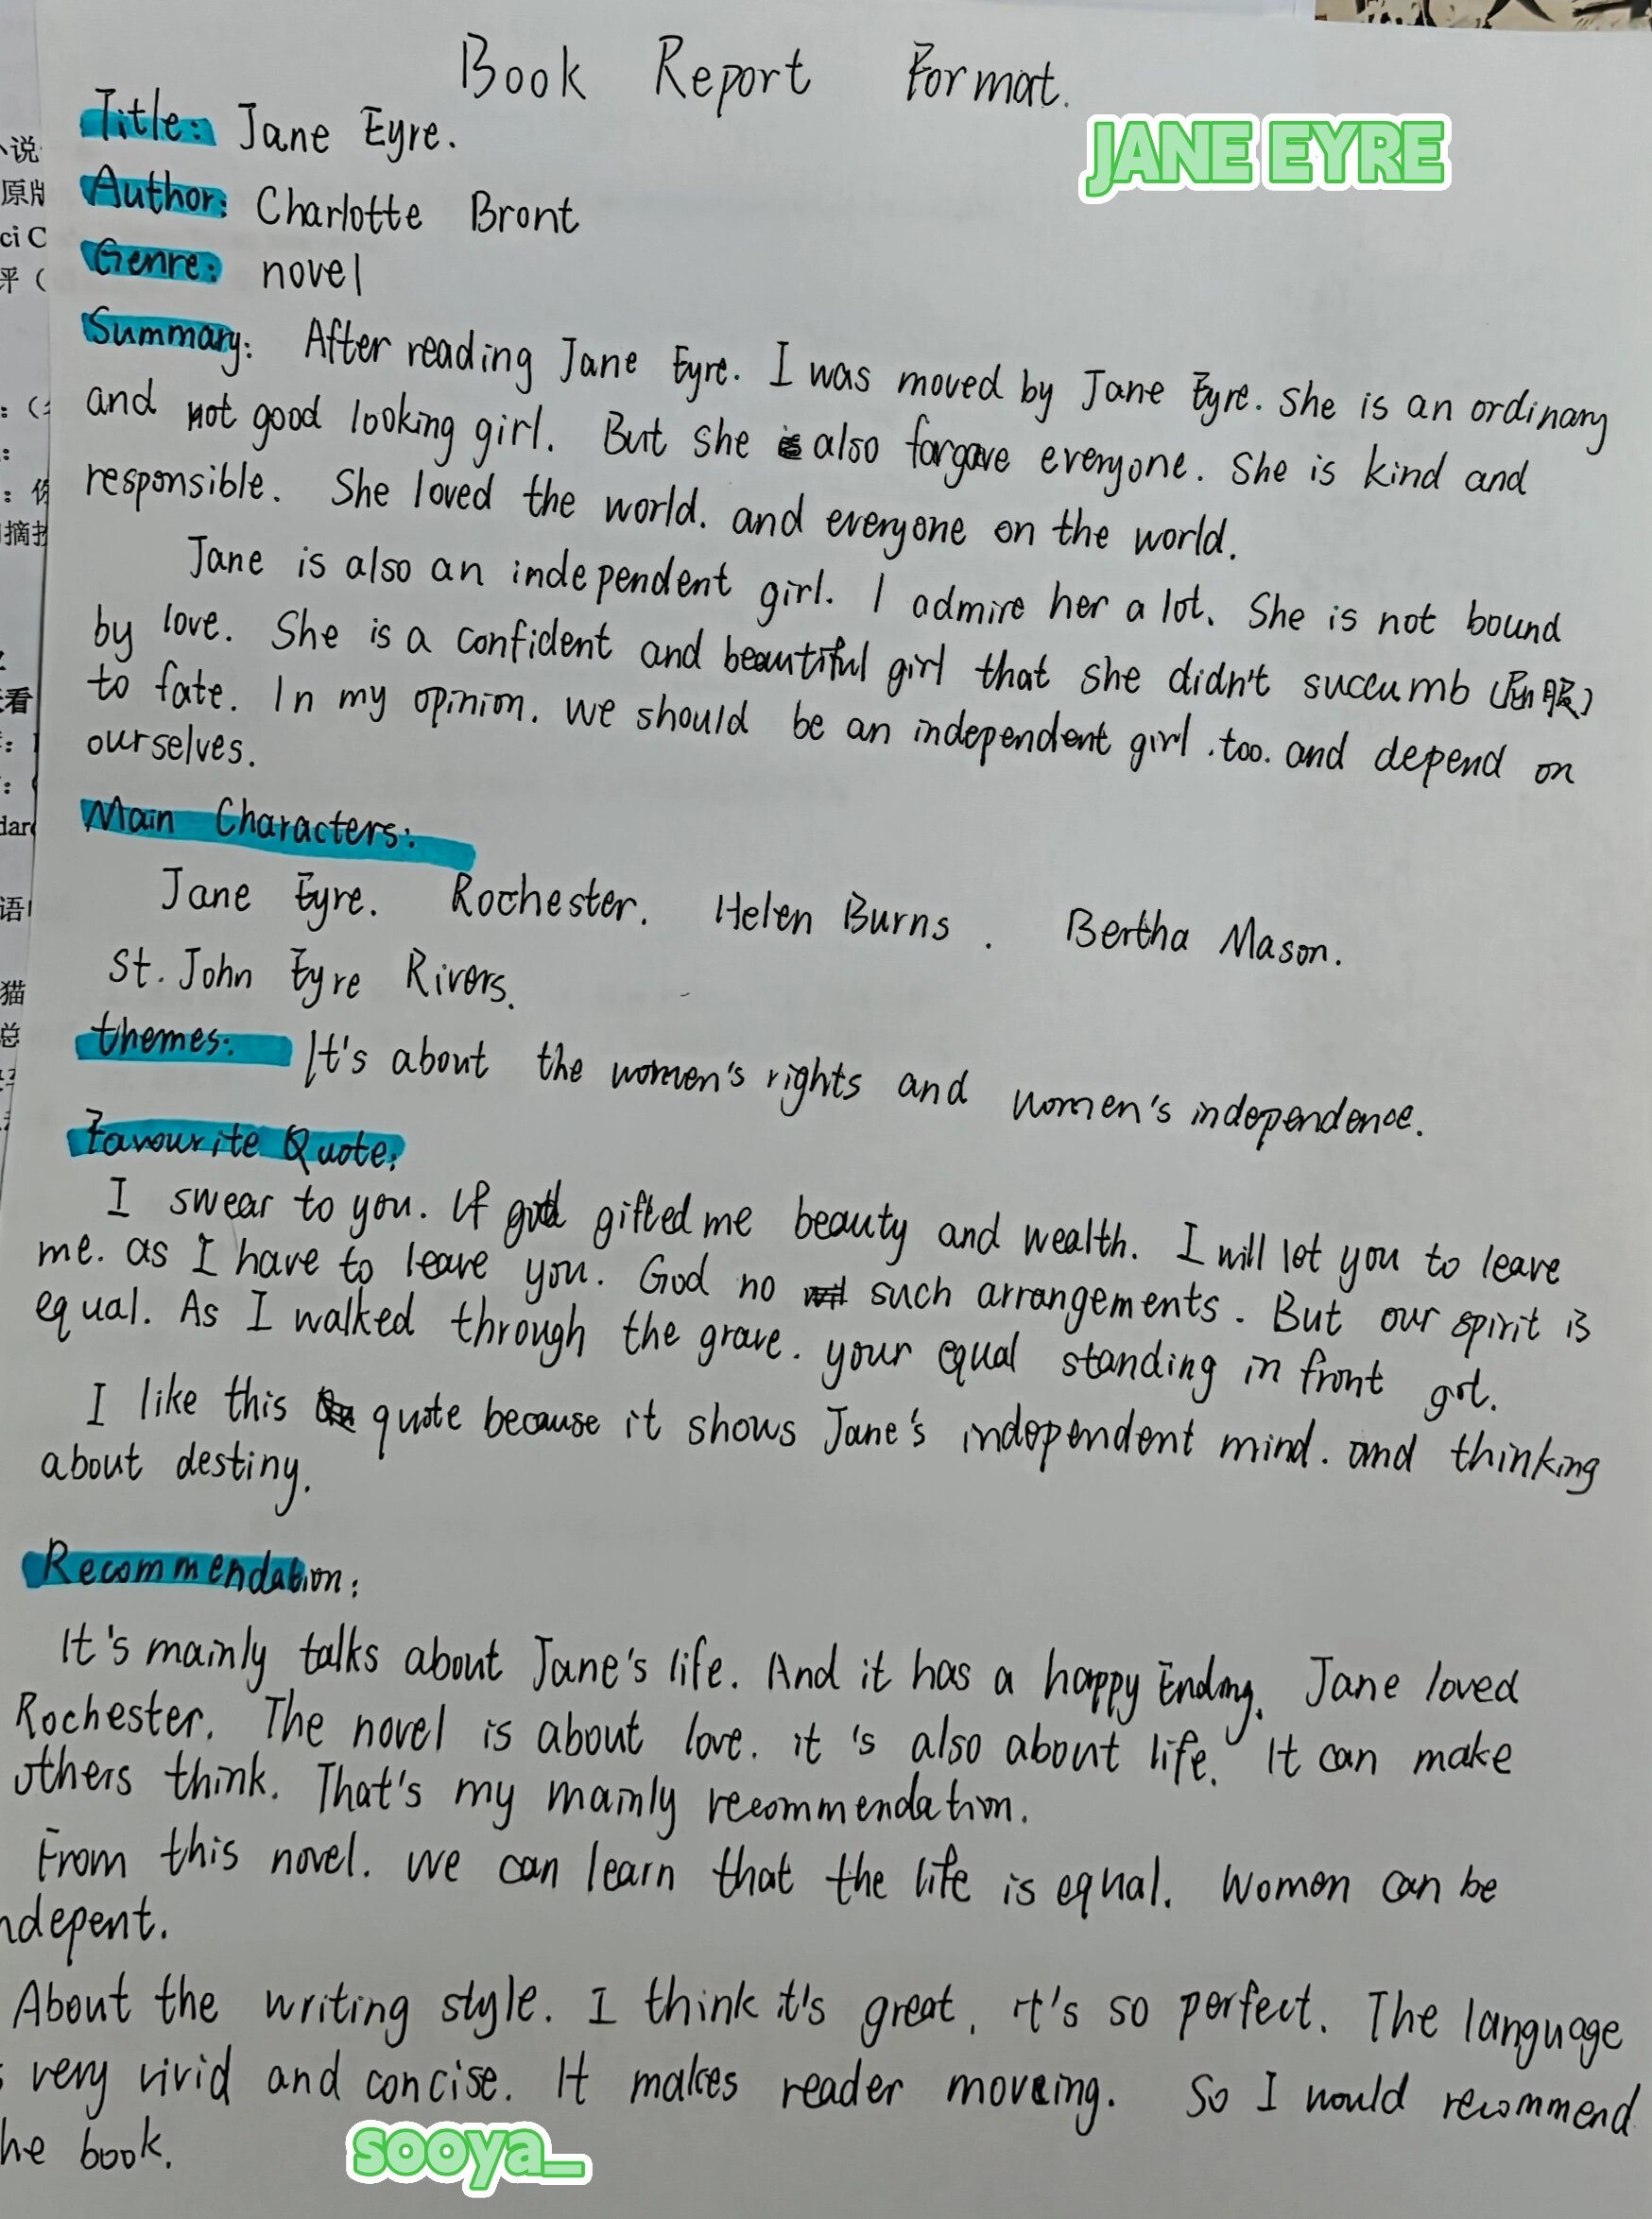 Book Report Format.
JANE EYRE
Title: Jane Eyre.
Author: Charlotte Bront
Genre: novel
Summary: After reading Jane Eyre. I was moved by Jane Eyre. She is an ordinary
and not good looking girl. But she also forgave everyone. She is kind and
responsible. She loved the world. and everyone on the world.
Jane is also an independent girl. I admire her a lot. She is not bound
by love. She is a confident and beautiful girl that she didn't succumb (屈服)
to fate. In my opinion. we should be an independent girl .too. and depend on
ourselves.
Main Characters:
Jane Eyre. Rochester. Helen Burns . Bertha Mason.
St. John Eyre Rivers.
themes: It's about the women's rights and women's independence.
Favourite Quote:
I swear to you. If god gifted me beauty and wealth. I will let you to leave
me. as I have to leave you. God no such arrangements. But our spirit is
equal. As I walked through the grave. your equal standing in front got.
I like this quote because it shows Jane's independent mind. and thinking
about destiny.
Recommendation:
It's mainly talks about Jane's life. And it has a happy Ending. Jane loved
Rochester. The novel is about love. it's also about life. It can make
others think. That's my mainly recommendation.
From this novel. we can learn that the life is equal. Women can be
ndepent.
About the writing style. I think it's great. it's so perfect. The language
s very vivid and concise. It makes reader moveing. So I would recommend
he book.
sooya_
小说
原版
ci C
评（
摘抄
看
dar
语
猫
总